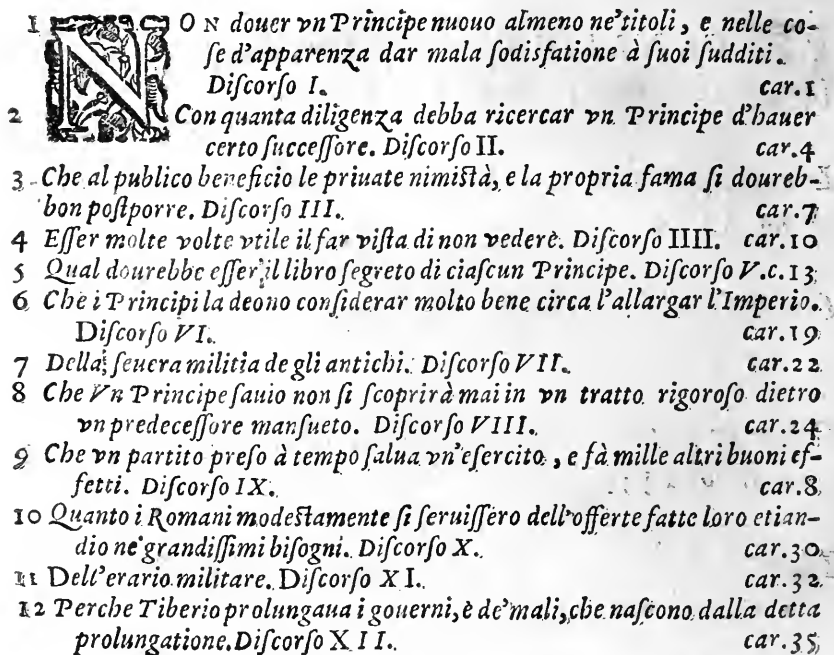 1 NON douer vn Principe nuouo almeno ne'titoli, e nelle co-
ſe d'apparenza dar mala ſodisfatione à ſuoi ſudditi.
Diſcorſo I. car.1
2 Con quanta diligenza debba ricercar vn Principe d'hauer
certo ſucceſſore. Diſcorſo II. car.4
3 Che al publico beneficio le priuate nimiſtà, e la propria fama ſi doureb-
bon poſtporre. Diſcorſo III. car.7
4 Eſſer molte volte vtile il far viſta di non vedere. Diſcorſo IIII. car.10
5 Qual dourebbe eſſer il libro ſegreto di ciaſcun Principe. Diſcorſo V.c.13
6 Che i Principi la deono conſiderar molto bene circa l'allargar l'Imperio.
Diſcorſo VI. car.19
7 Della ſeuera militia de gli antichi. Diſcorſo VII. car.22
8 Che Vn Principe ſauio non ſi ſcoprirà mai in vn tratto rigoroſo dietro
vn predeceſſore manſueto. Diſcorſo VIII. car.24
9 Che vn partito preſo à tempo ſalua vn'eſercito, e fà mille altri buoni ef-
fetti. Diſcorſo IX. car.8
10 Quanto i Romani modeſtamente ſi ſeruiſſero dell'offerte fatte loro etian-
dio ne'grandiſſimi biſogni. Diſcorſo X. car.30
11 Dell'erario militare. Diſcorſo XI. car.32
12 Perche Tiberio prolungaua i gouerni, è de'mali, che naſcono dalla detta
prolungatione. Diſcorſo XII. car.35